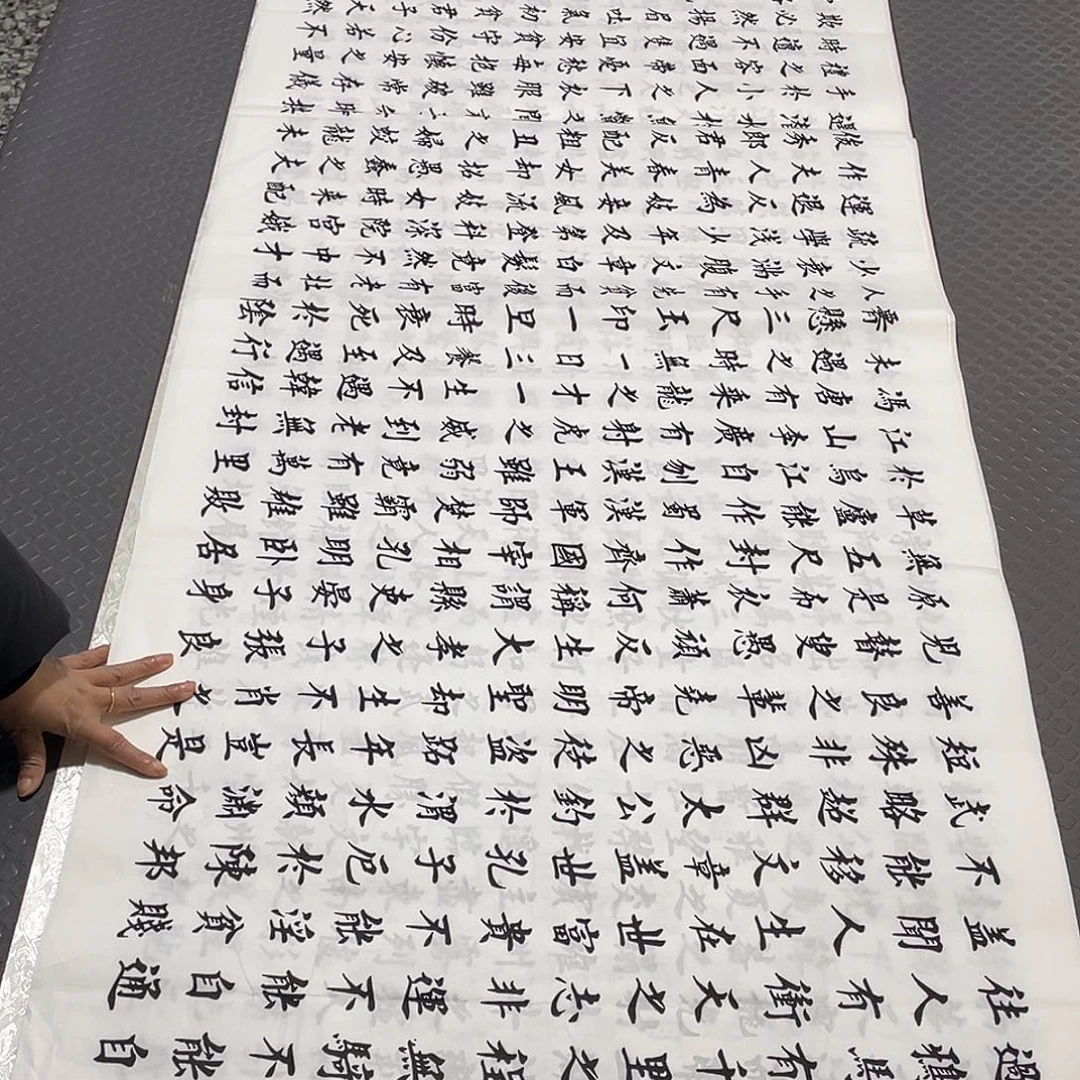 過鴉馬有千里之程無騎不能自
往人有衝天之志非運不能自通
蓋聞人生在世富貴不能淫貧賤
不能移文章蓋世孔子厄於陳邦
武略超群太公釣於渭水顏淵命
短殊非凶惡之徒盜跖年長豈是
善良之輩堯帝明聖却生不肖之
兒瞽叟愚頑反生大孝之子張良
原是布衣蕭何稱謂縣吏晏子身
無五尺封作齊國宰相孔明臥居
草廬能作蜀漢軍師楚霸雖雄敗
於烏江自刎漢王雖弱竟有萬里
江山李廣有射虎之威到老無封
馮唐有乘龍之才一生不遇韓信
未遇之時無一日三餐及至遇行
腰懸三尺玉印一旦時衰死於陰
人之手有先貧而後富有老壯而
少衰滿腹文章白髮竟然不中才
疏學淺少年及第登科深院宮娥
運退反為妓妾風流妓女時來配
作夫人青春美女却招愚蠢之夫
俊秀郎君反配粗丑之婦蛟龍未
遇潛水於魚鱉之間君子失時拱
手於小人之下衣服雖破常存儀
禮之容面帶憂愁每抱懷安之量
時遭不遇只宜安貧守份心若不
欺必然揚眉吐氣初貧君子天然